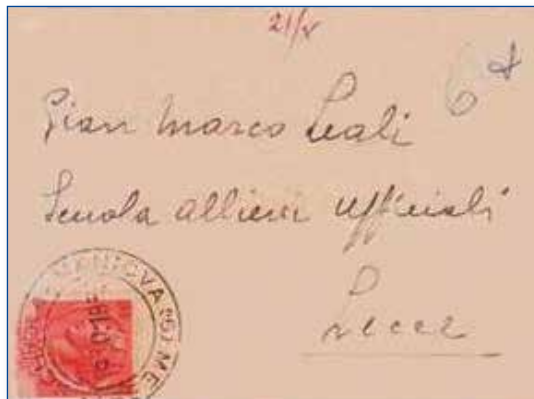 21/V
6ª
Gian Marco Leali
Scuola allievi ufficiali
Lecce
MANTOVA